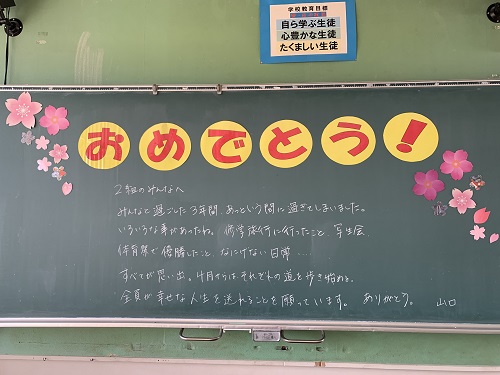 学校教育目標
自ら学ぶ生徒
心豊かな生徒
たくましい生徒
おめでとう!
2組のみんなへ
みんなと過ごした3年間、あっという間に過ぎてしまいました。
いろいろな事があったね。修学旅行に行ったこと、写生会、
体育祭で優勝したこと、なにげない日常...
すべてが思い出。4月からはそれぞれの道を歩き始める。
全員が幸せな人生を送れることを願っています。 ありがとう。 山口